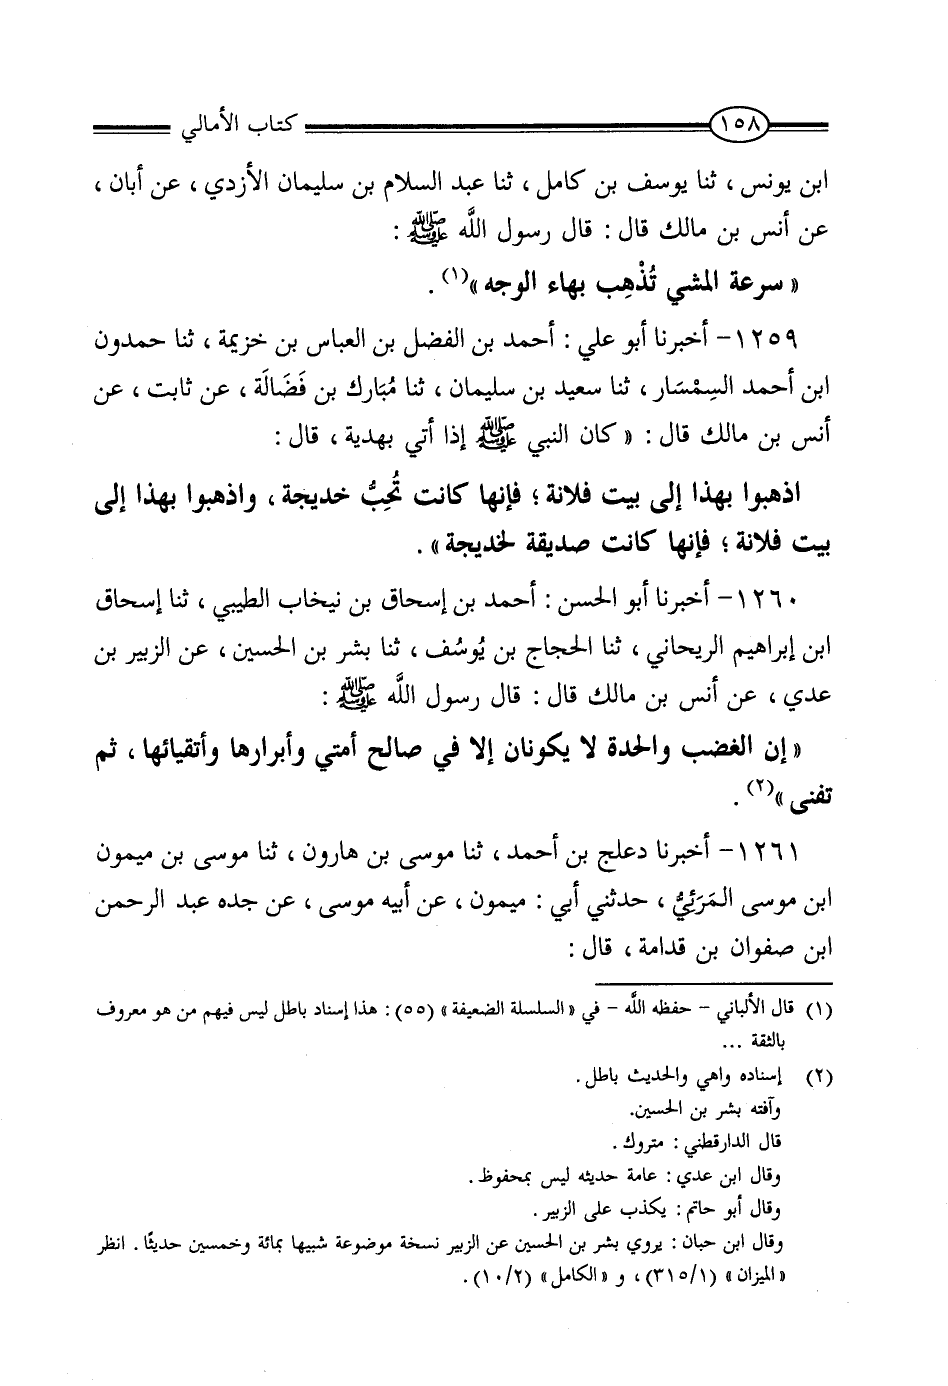 ١٥٨ كتاب الأمالي
ابن يونس ، ثنا يوسف بن كامل ، ثنا عبد السلام بن سليمان الأزدي ، عن أبان ،
عن أنس بن مالك قال : قال رسول اللَّه ﷺ :
« سرعة المشي تُذْهِب بهاء الوجه »(١) .
١٢٥٩- أخبرنا أبو علي : أحمد بن الفضل بن العباس بن خزيمة ، ثنا حمدون
ابن أحمد السِمْسَار ، ثنا سعيد بن سليمان ، ثنا مُبَارك بن فَضَالَة ، عن ثابت ، عن
أنس بن مالك قال : « كان النبي ﷺ إذا أتي بهدية ، قال :
اذهبوا بهذا إلى بيت فلانة ؛ فإنها كانت تُحِبُّ خديجة ، واذهبوا بهذا إلى
بيت فلانة ؛ فإنها كانت صديقة لخديجة » .
١٢٦٠- أخبرنا أبو الحسن : أحمد بن إسحاق بن نيخاب الطيبي ، ثنا إسحاق
ابن إبراهيم الريحاني ، ثنا الحجاج بن يُوسُف ، ثنا بشر بن الحسين ، عن الزبير بن
عدي ، عن أنس بن مالك قال : قال رسول اللَّه ﷺ :
« إن الغضب والحدة لا يكونان إلا في صالح أمتي وأبرارها وأتقيائها ، ثم
تفنى »(٢) .
١٢٦١- أخبرنا دعلج بن أحمد ، ثنا موسى بن هارون ، ثنا موسى بن ميمون
ابن موسى المَرَئِيُّ ، حدثني أبي : ميمون ، عن أبيه موسى ، عن جده عبد الرحمن
ابن صفوان بن قدامة ، قال :
(١) قال الألباني - حفظه اللَّه - في « السلسلة الضعيفة » (٥٥) : هذا إسناد باطل ليس فيهم من هو معروف
بالثقة ...
(٢) إسناده واهي والحديث باطل .
وآفته بشر بن الحسين.
قال الدارقطني : متروك .
وقال ابن عدي : عامة حديثه ليس بمحفوظ .
وقال أبو حاتم : يكذب على الزبير .
وقال ابن حبان : يروي بشر بن الحسين عن الزبير نسخة موضوعة شبيها بمائة وخمسين حديثًا . انظر
« الميزان » (٣١٥/١) ، و « الكامل » (١٠/٢) .